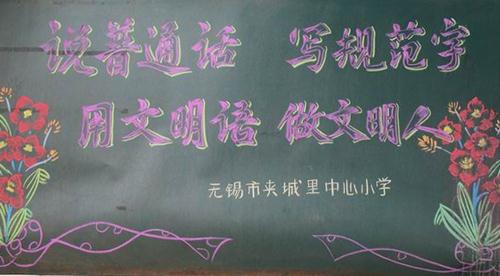 说普通话 写规范字
用文明语 做文明人
无锡市夹城里中心小学